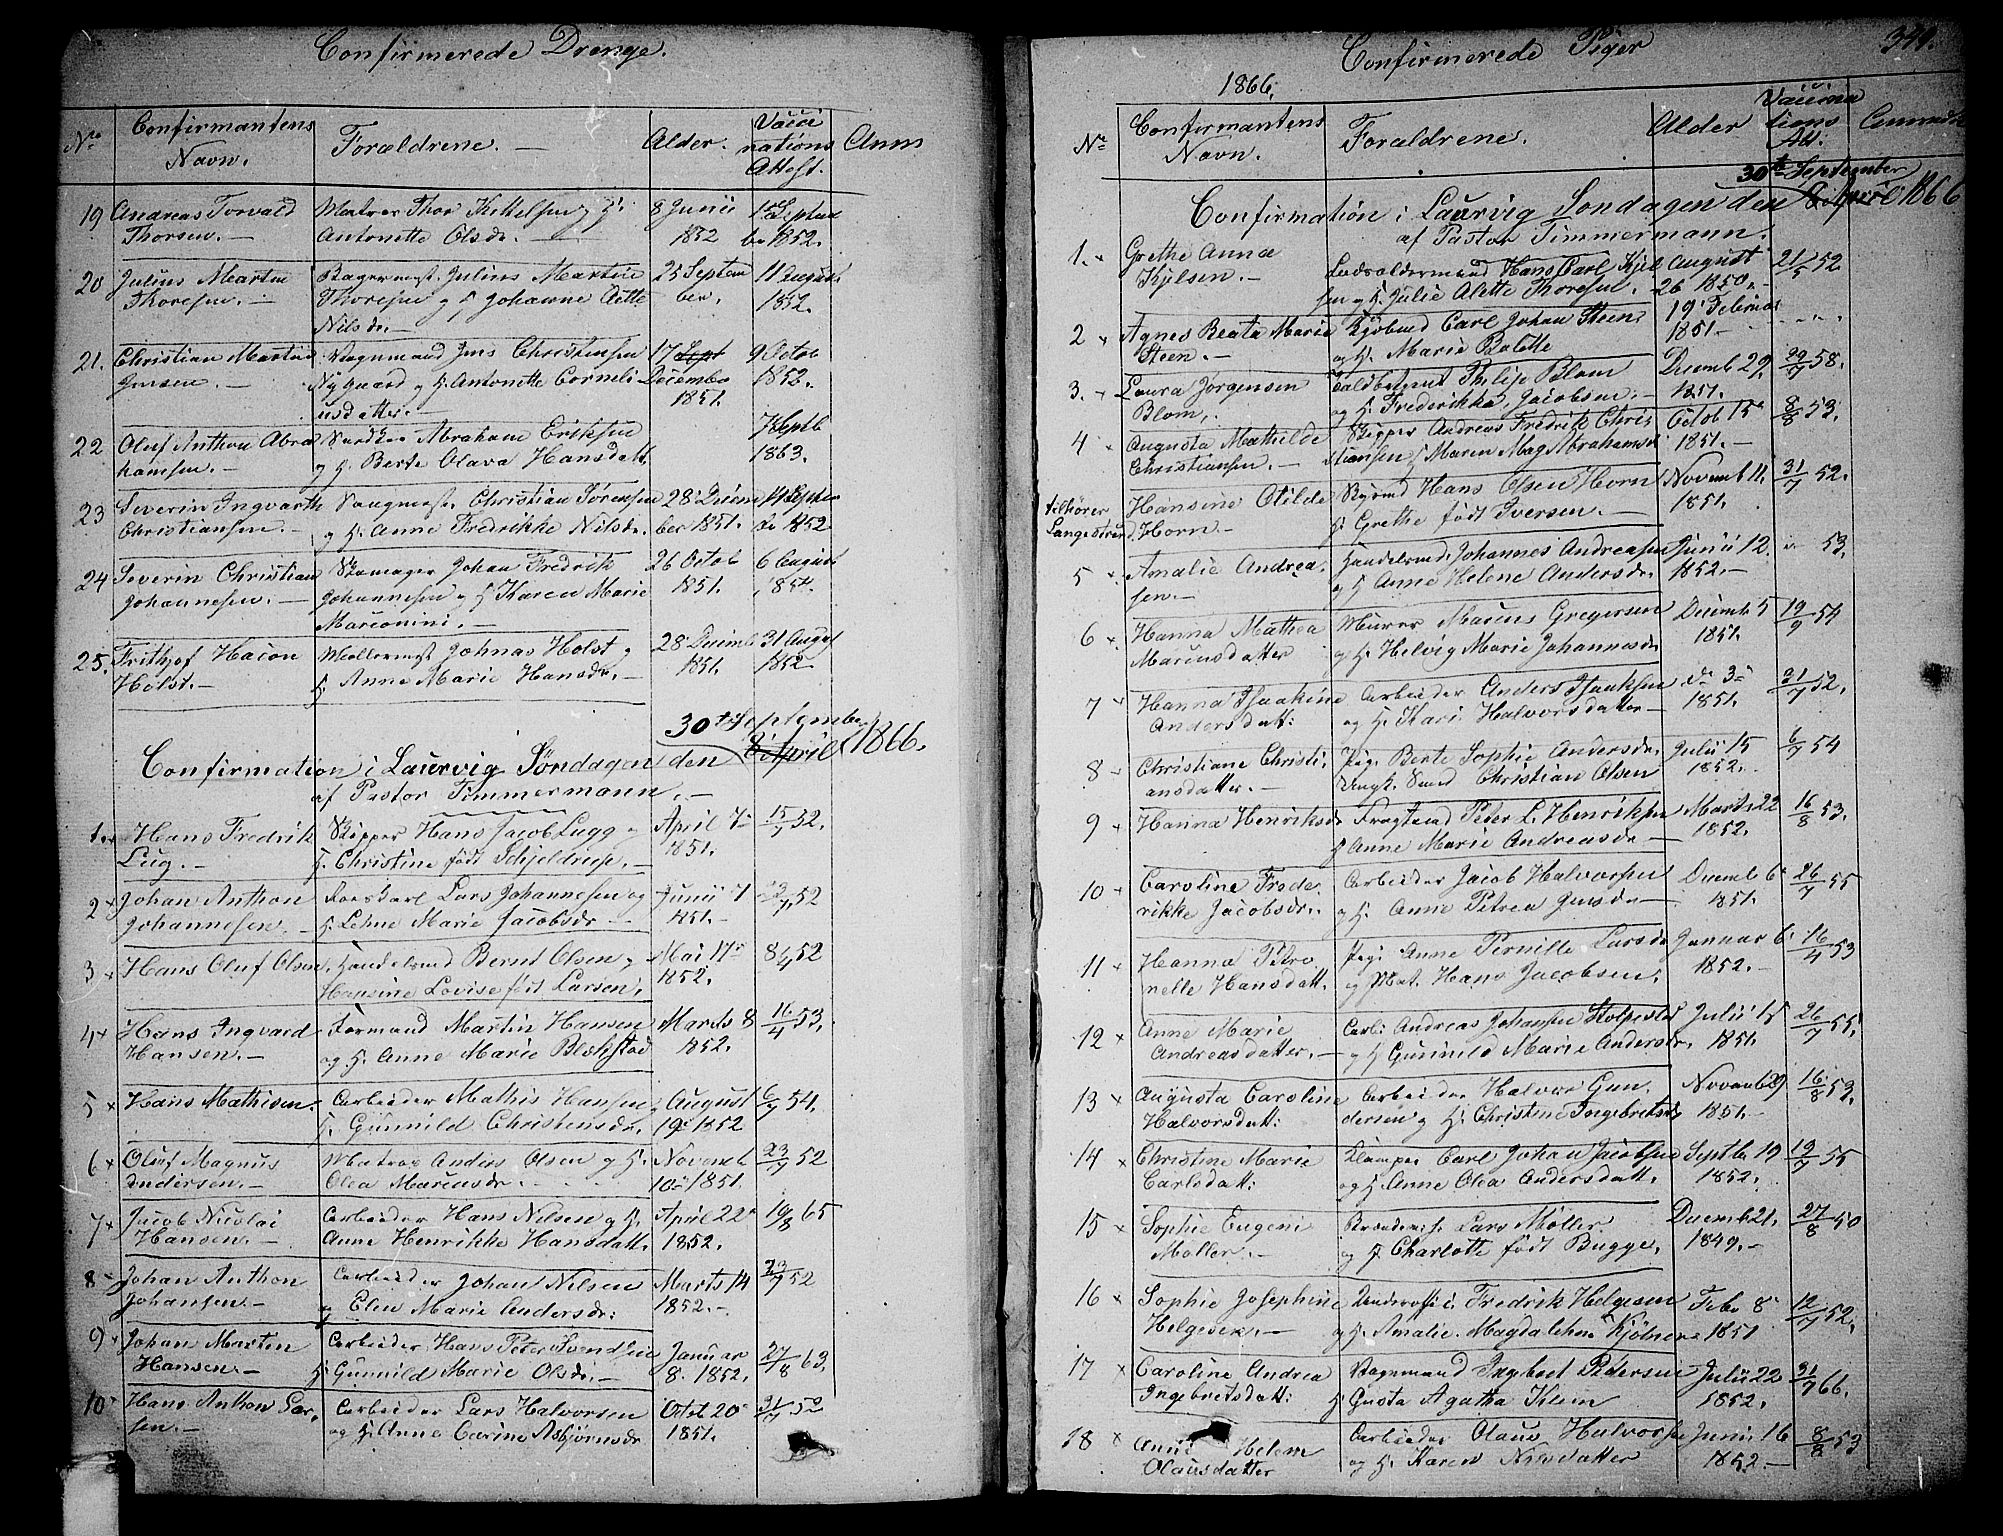 Confirmerede Drenge.
No Confirmantens Navn. Forældrene. — Alder. Vacci nations Attest. Anm
19 Andreas Torvald Matros Thor Kittelsen og H. 8 Junii 1 Septem
Thorsen. — Antonette Olsdr. — 1852 br 1852.
20 Julius Martin Bagermest. Julius Martin 25 Septem 11 August
Thoresen. — Thoresen og H. Johanne Aette ber. 1852.
Nilsdr. —
21. Christian Martin Vognmand Jens Christensen 17 Sept 9 Octob
Jensen. — Nygaard og H. Antonette Corneli Decembr 1852.
usdatter. — 1851.
22 Oluf Anthon Abra Abraham Eriksen 7 Septb
hamsen. — og H. Berte Olava Hansdatt. 1863.
23 Severin Ingvarth Saugmest. Christian Sørensen 28 Decem
Christiansen. og H. Anne Fredrikke Nilsdr. ber 1851. 1852
24 Severin Christian Johan Fredrik 26 Octob 6 August
Johannesen. — Johannesen og H. Karen Marie 1851.
Marconini. —
25. Frithjof Hacon Møllermest. Johnas Holst og 28 Decemb 31 August
Holst. — H. Anne Marie Hansdr. — 1851. 1852
30te September
Confirmation i Laurvig Søndagen den 8 April 1866.
af Pastor Timmermann. —
1. Hans Fredrik Skipper Hans Jacob Lugg og April 7 15/7 52.
Lug. — H. Christine født Schjeldrup. — 1851.
2 Johan Anthon Lars Johannesen og Junii 7 23/7 52
Johannesen. H. Lehne Marie Jacobsdr 1851.
3 Hans Oluf Olsen. Handelsmd Bernt Olsen og Mai 17 8/4 52
Hansine Lovise født Larsen. 1852.
4 Hans Ingvard Formand Martin Hansen Marts 8 16/4 53.
Hansen. — og H. Anne Marie Blekstad 1852.
5 Hans Mathisen. Arbeider Mathis Hansen August 6/7 54.
H. Gunnild Christensdr. 19 1852
6 Oluf Magnus Matros Anders Olsen og H. Novemb 23/7 52
Andersen. — Olea Marcusdr. 10 1851.
7 Jacob Nicolai Arbeider Hans Nilsen og H. April 22 19/8 65
Hansen. — Anne Henrikke Hansdatt. 1852.
8 Johan Anthon Arbeider Johan Nilsen Marts 14 23/7 52
Johansen. — og Elen Marie Andersdr. 1852. —
9 Johan Marten Arbeider Hans Peter Svendsen Januar 27/8 63.
Hansen. — H. Gunnild Marie Olsdr. — 8. 1852.
10 Hans Anthon Lar Arbeider Lars Halvorsen Octob 20 31/7 52
sen. — og H. Anne Carine Asbjørnsdr 1851.
Confirmerede Piger 341.
1866.
No Confirmantens Navn. Forældrene. Alder Vaccina tions Att.
30te September
Confirmation i Laurvig Søndagen den 8 April 1866
af Pastor Timmermann.
1. Grethe Anna Lodsoldermand Hans Carl Kjel August 21/5 52
Kjelsen. — sen og H. Julie Alette Thoresen. 26 1850. —
2 Agnes Beata Maria Kjøbmd Carl Johan Steen 19 Februar
Steen. — og H. Marie Balette 1851. —
3. Laura Jørgensen Philip Blom Decemb 29. 29/7 58.
Blom. og H. Frederikke Jacobsen. — 1851.
4 Augusta Mathilde Skipper Andreas Fredrik Chris Octob 15 8/8 53.
Christiansen. — tiansen H. Maren Mag Abrahamsd 1851. —
tilhører Langestrand. Hansine Otilde Hans Olsen Horn Novemb 11. 31/7 52.
Horn — H. Grethe født Iversen. — 1851.
5 Amalie Andrea Handelsmd. Johannes Andreasen Junii 12. 53.
sen. — og H. Anne Helene Andersdr. 1852. —
6 Hanna Mathea Murer Marcus Gregersen Decemb 5 19/9 54
Marcusdatter og H. Helvig Marie Johannesdr 1851.
7 Hanna Isaakine Arbeider Anders Isaaksen do 3 31/7 52.
Andersdatt: og H. Kari Halvorsdatter — 1851.
8 Christiane Christi Pige Berte Sophie Andersdr. Julii 15 6/7 54
ansdatter. — Ungk. Smed Christian Olsen 1852. —
9 Hanna Henriksdr Fragtemd Peder L. Henriksen Marts 22 16/8 53.
H. Anne Marie Andreasdr — 1852.
10 Caroline Frede Arbeider Jacob Halvorsen Decemb 6 26/7 55
rikke Jacobsdr. og H. Anne Petrea Jensdr — 1851.
11 Hanna Petro Pige Anne Pernille Larsdr Januar 6. 16/4 53
nelle Hansdatt. og Mat. Hans Jacobsen. 1852. —
12 Anne Marie Arb: Andreas Johansen Stolpestad Julii 15 26/7 55.
Andreasdatter. — og H. Gunnild Marie Andersdr. 1851.
13 Augusta Caroline Arbeider Halvor Gun Novemb 29 16/8 53.
Halvorsdatt: dersen og H. Christine Ingebretsdr 1851. —
14 Christine Marie Carl Johan Jacobsen Septbr 19 19/7 55
Carlsdatt: og H. Anne Olea Andersdatt. 1852.
15 Sophie Eugeni Lars Møller Decemb 21. 27/8 50
Møller. — og H. Charlotte født Bugge. 1849. —
16 Sophie Josephine Underoffi: Fredrik Helgesen Febr 8 12/7 52.
Helgesen. — og H. Amalie Magdalehne Kjølner 1851
17 Caroline Andrea Vognmand Ingebret Pedersen Julii 22 31/7 66.
Ingebretsdatt: H. Gusta Agatha Klein 1852.
18 Anne Helene Arbeider Olaus Halvorsen Junii 16 8/8 53
Olausdatter og H. Karen Nirsdatter 1852. —